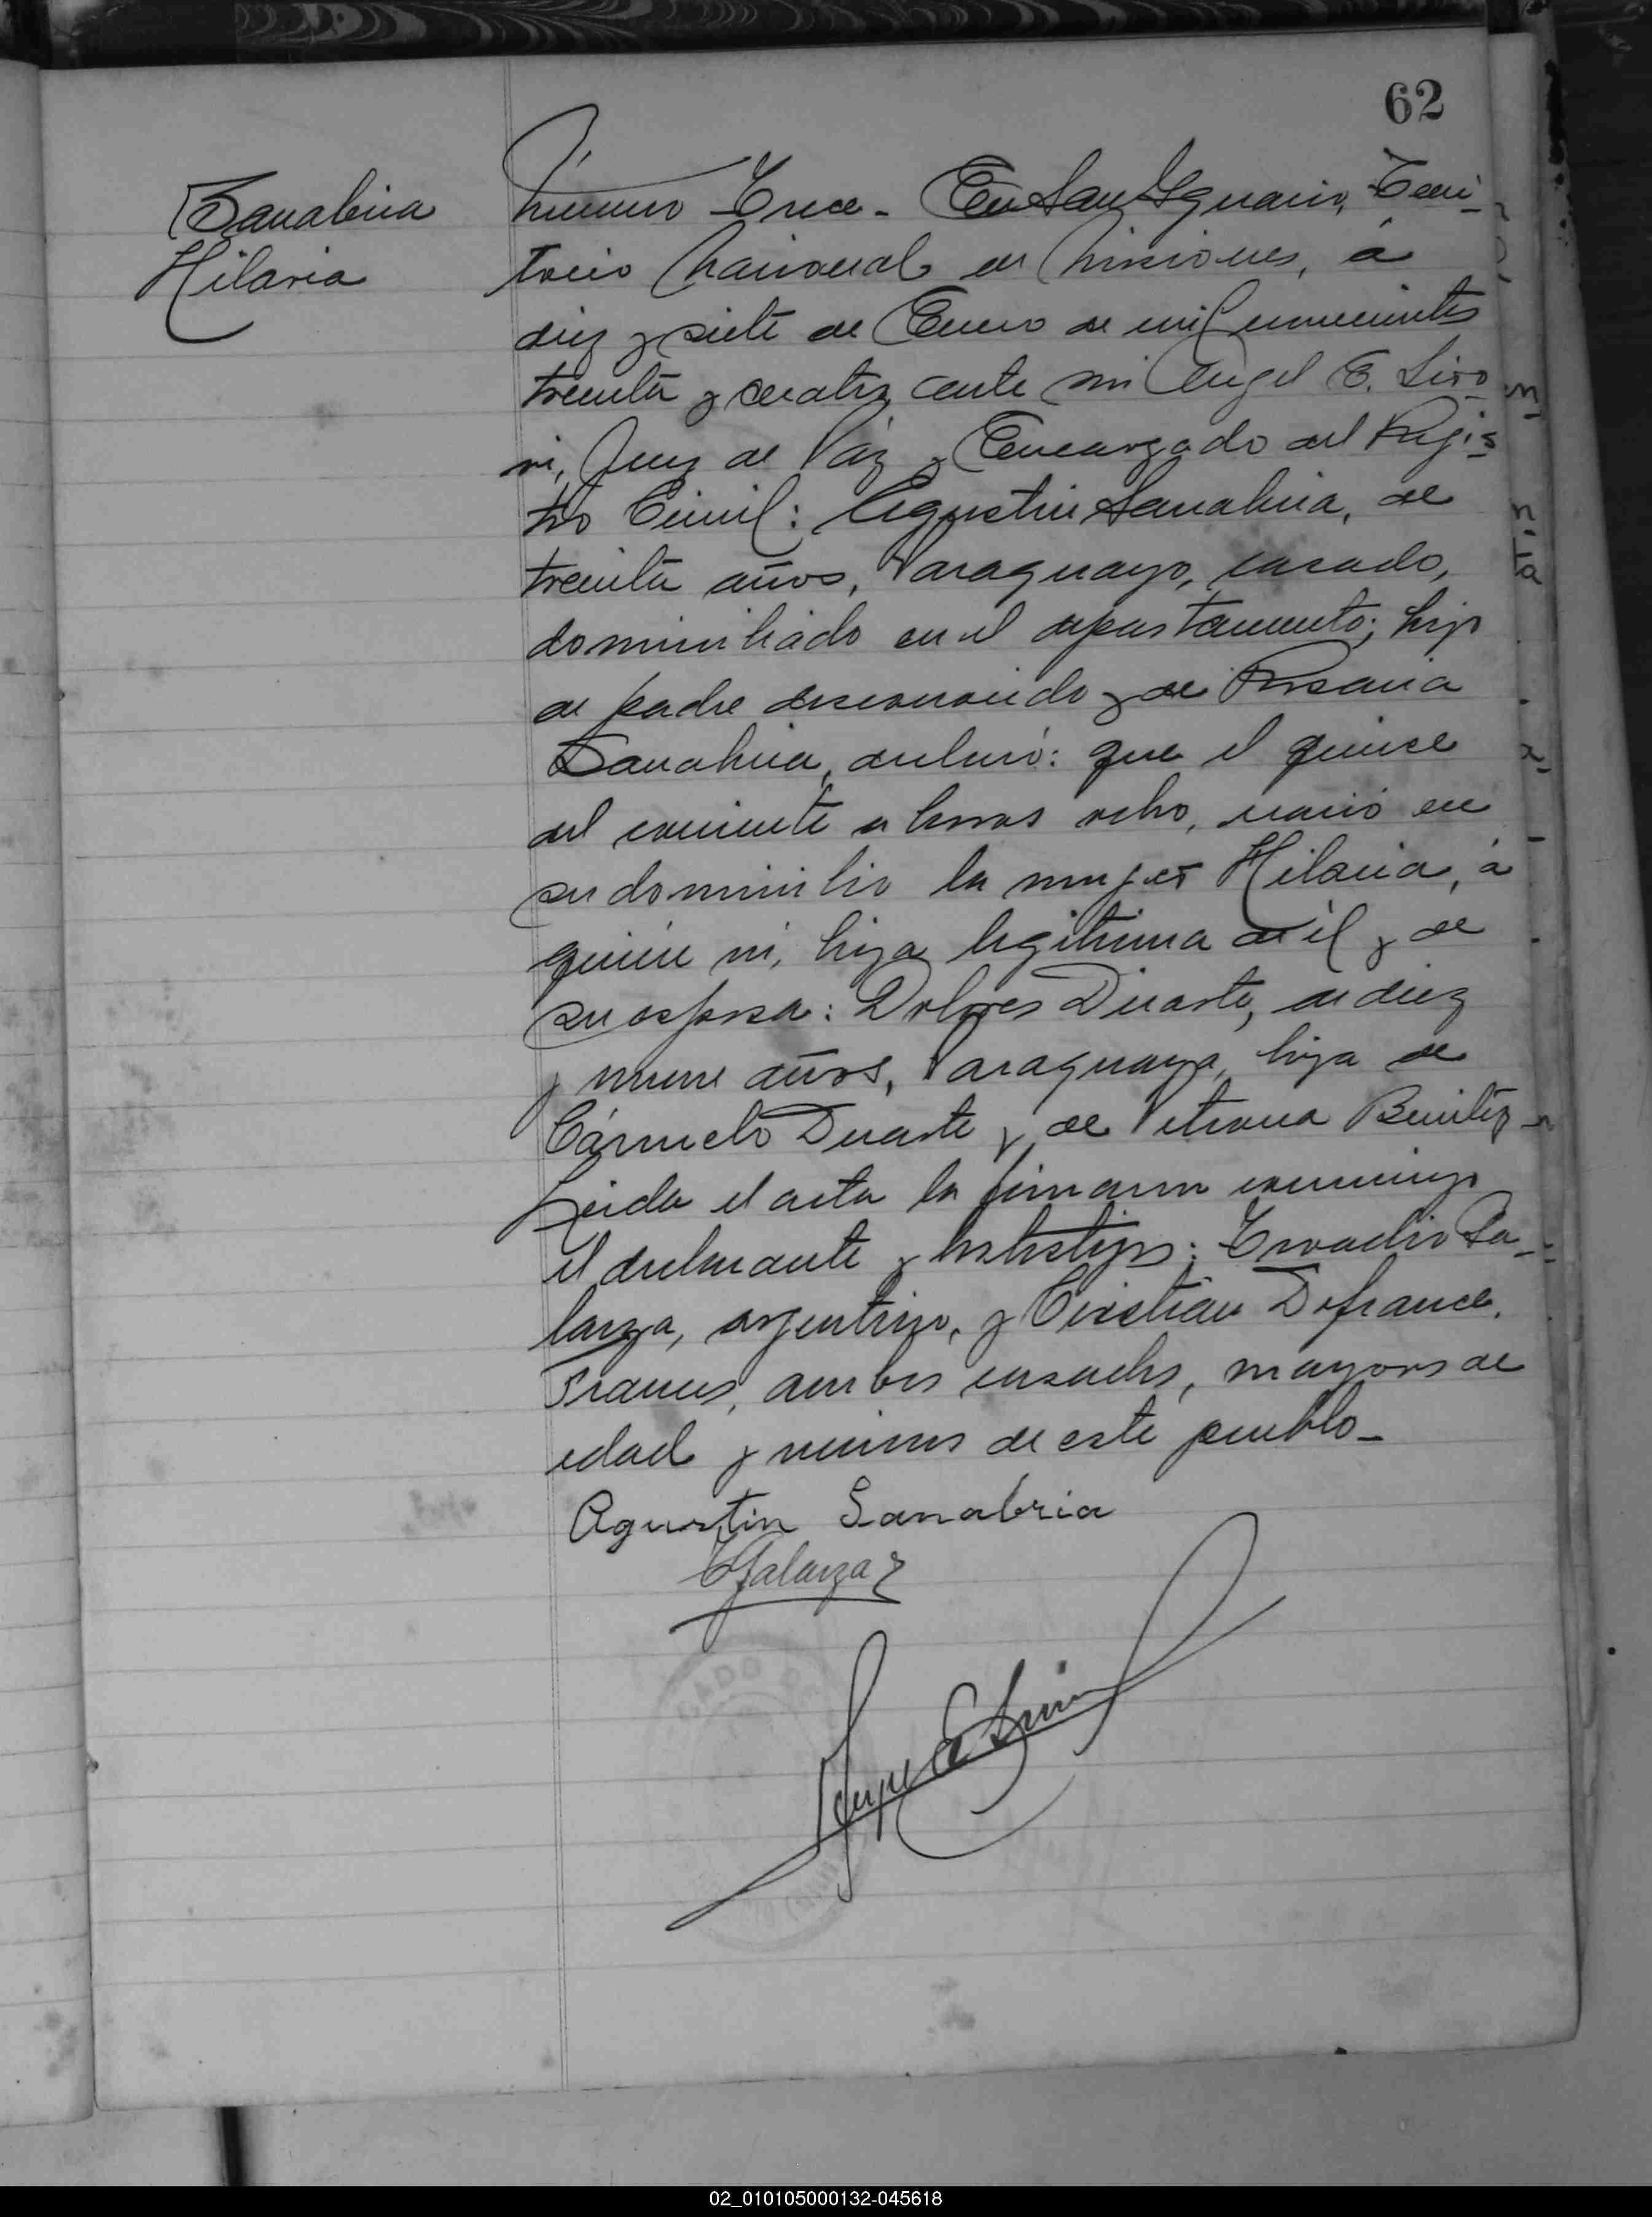 62
Sanabria
Hilaria
Número Trece - En San Ignacio, Terri-
torio Nacional de Misiones, á
diez y siete de Enero de mil novecientos
treinta y cuatro, ante mi Angel E. 
ni, Juez de Páz y Encargado del Regis-
tro Civil: Agustin Sanabria, de
treinta años, Paraguayo, casado,
domiciliado en el departamento; hijo
de padre desconocido y de Rosaria
Sanabria, declaró: que el quince
del corriente a horas ocho, nació en
su domicilio la mujer Hilaria, á
quien vi, hija legitima de él y de
su esposa: Dolores Duarte, de diez
y nueve años, Paraguaya, hija de
Cármelo Duarte y de Petrona Benitez
Leida el acta la firmaron conmigo
el declarante y los testigos: Ga-
larza, argentino, y Cristian Defrance,
Frances, ambos casados, mayores de
edad y vecinos de este pueblo -
Agustin Sanabria
Galarza
Angel E
02_010105000132-045618